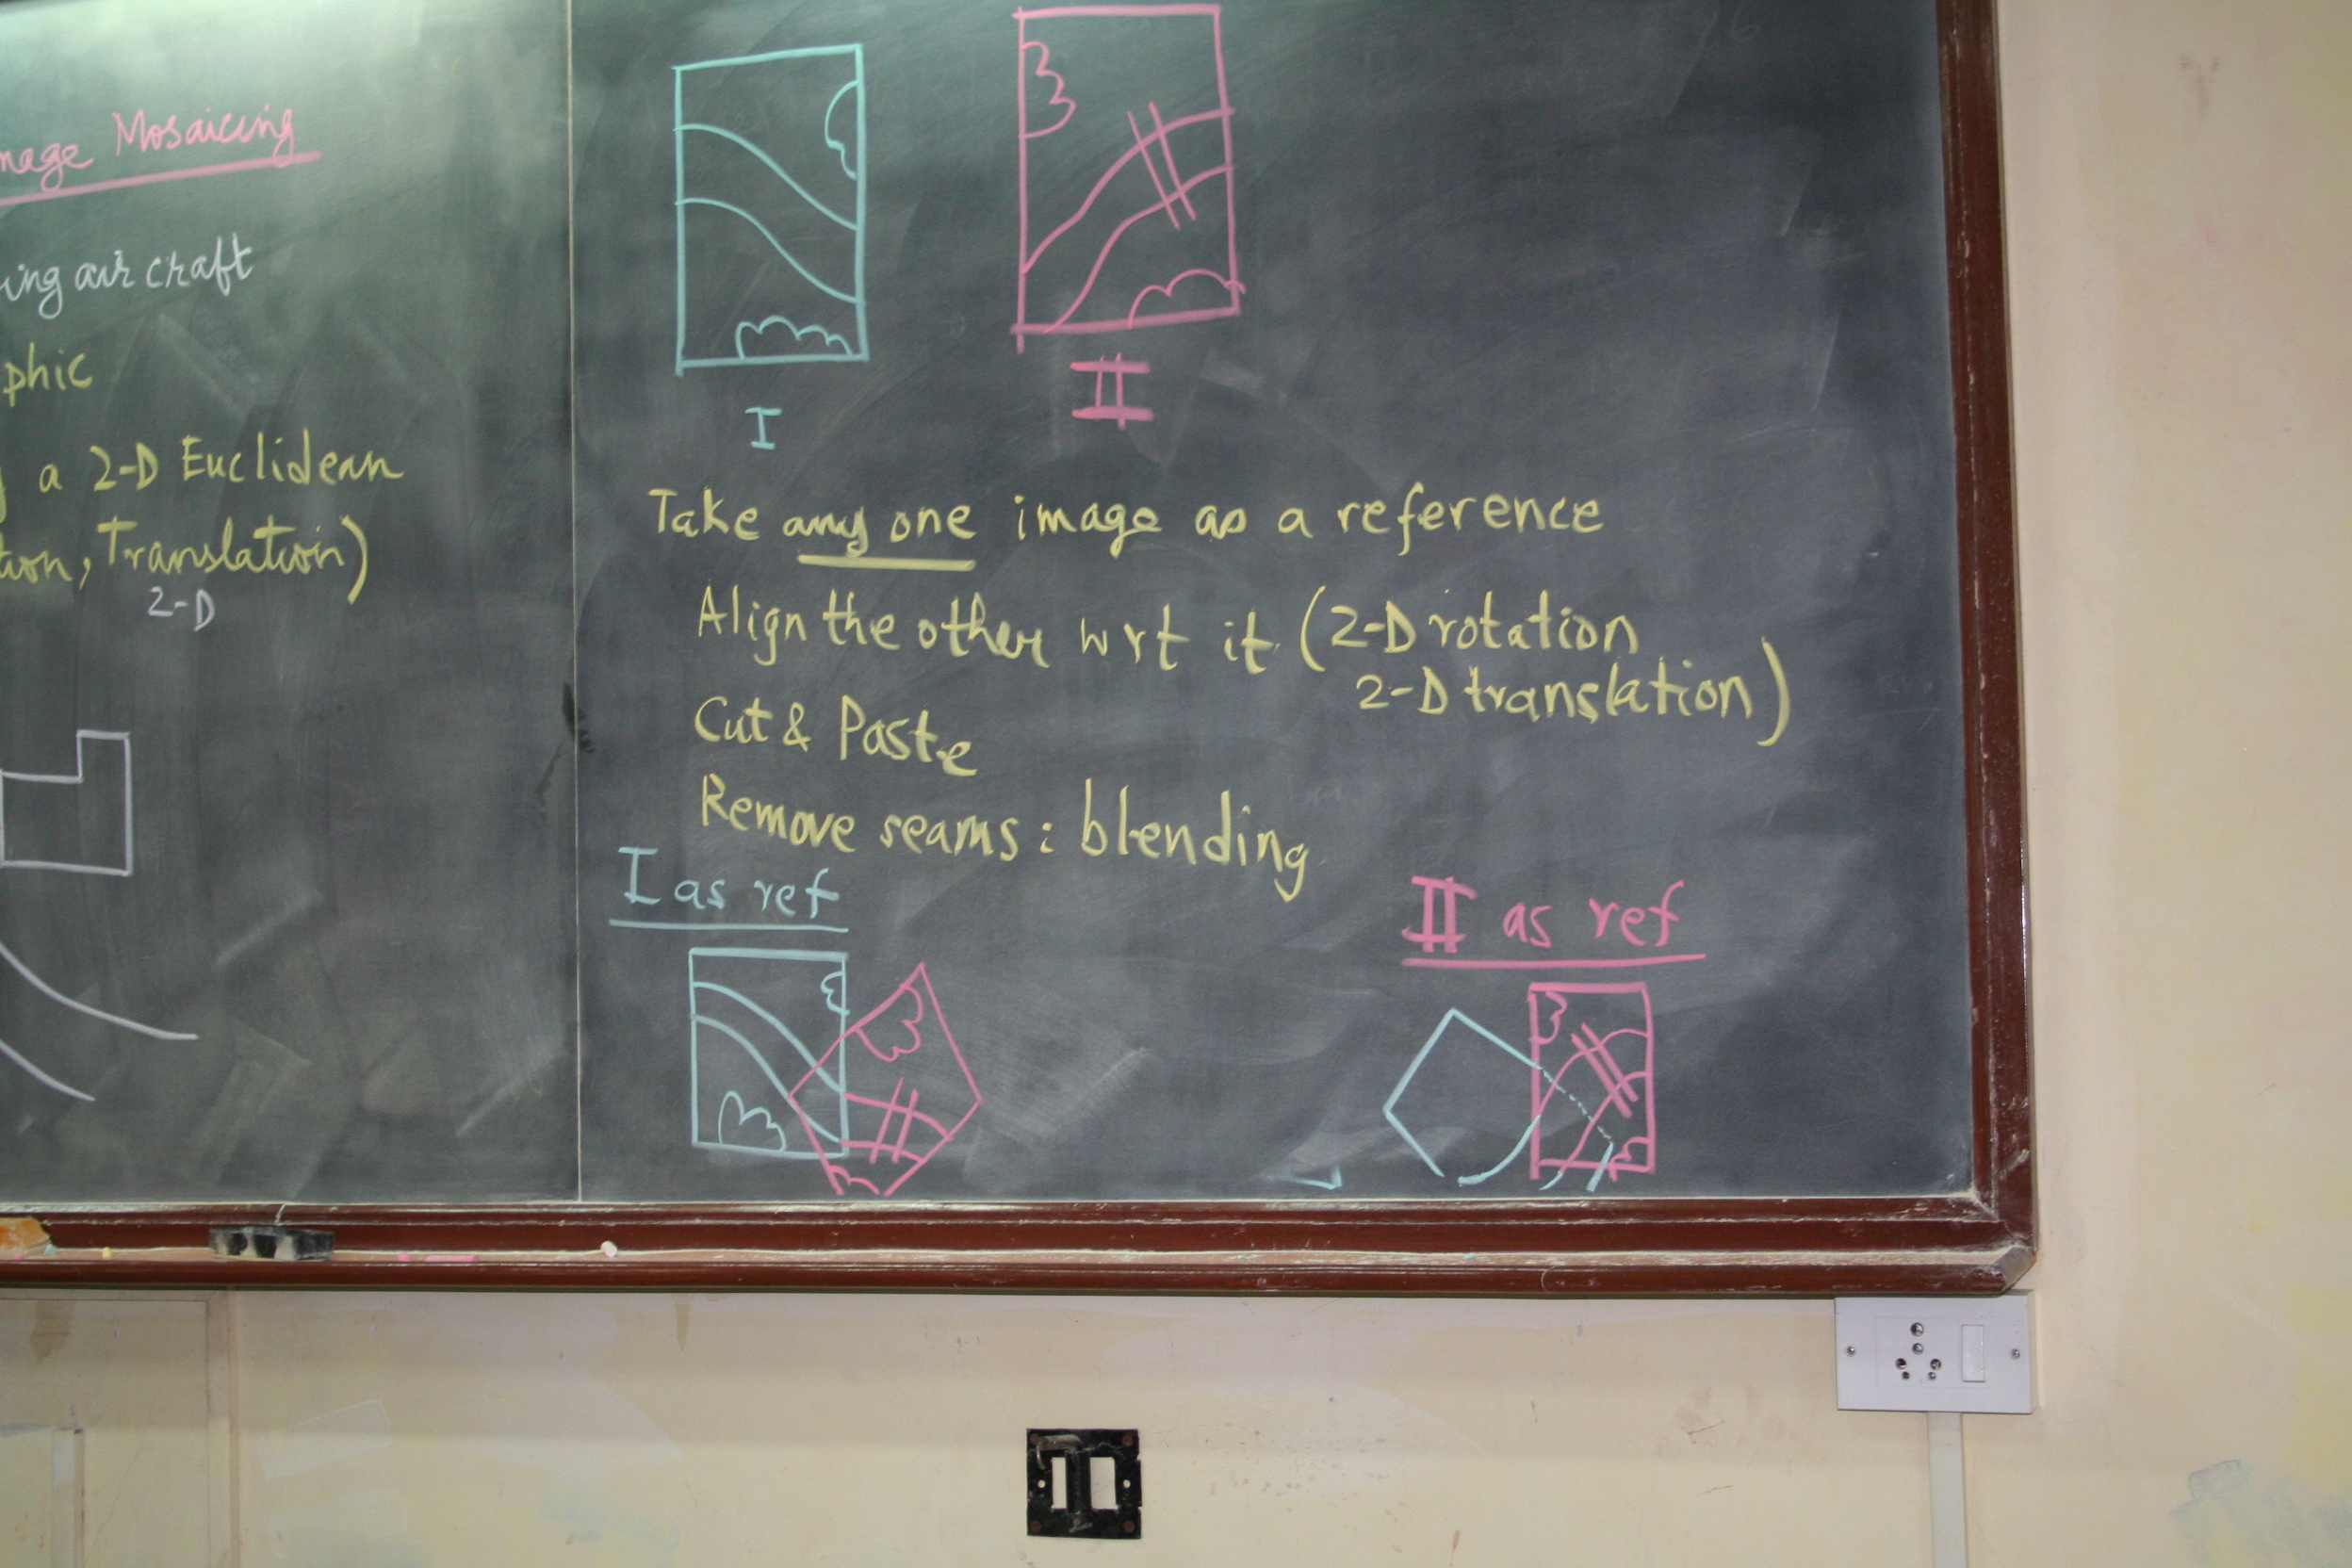 Mosaicing
air craft
a 2-D Euclidean
Translation)
2-D
I
II
Take any one image as a reference
Align the other wrt it (2-D rotation
2-D translation)
Cut & Paste
Remove seams : blending
I as ref
II as ref